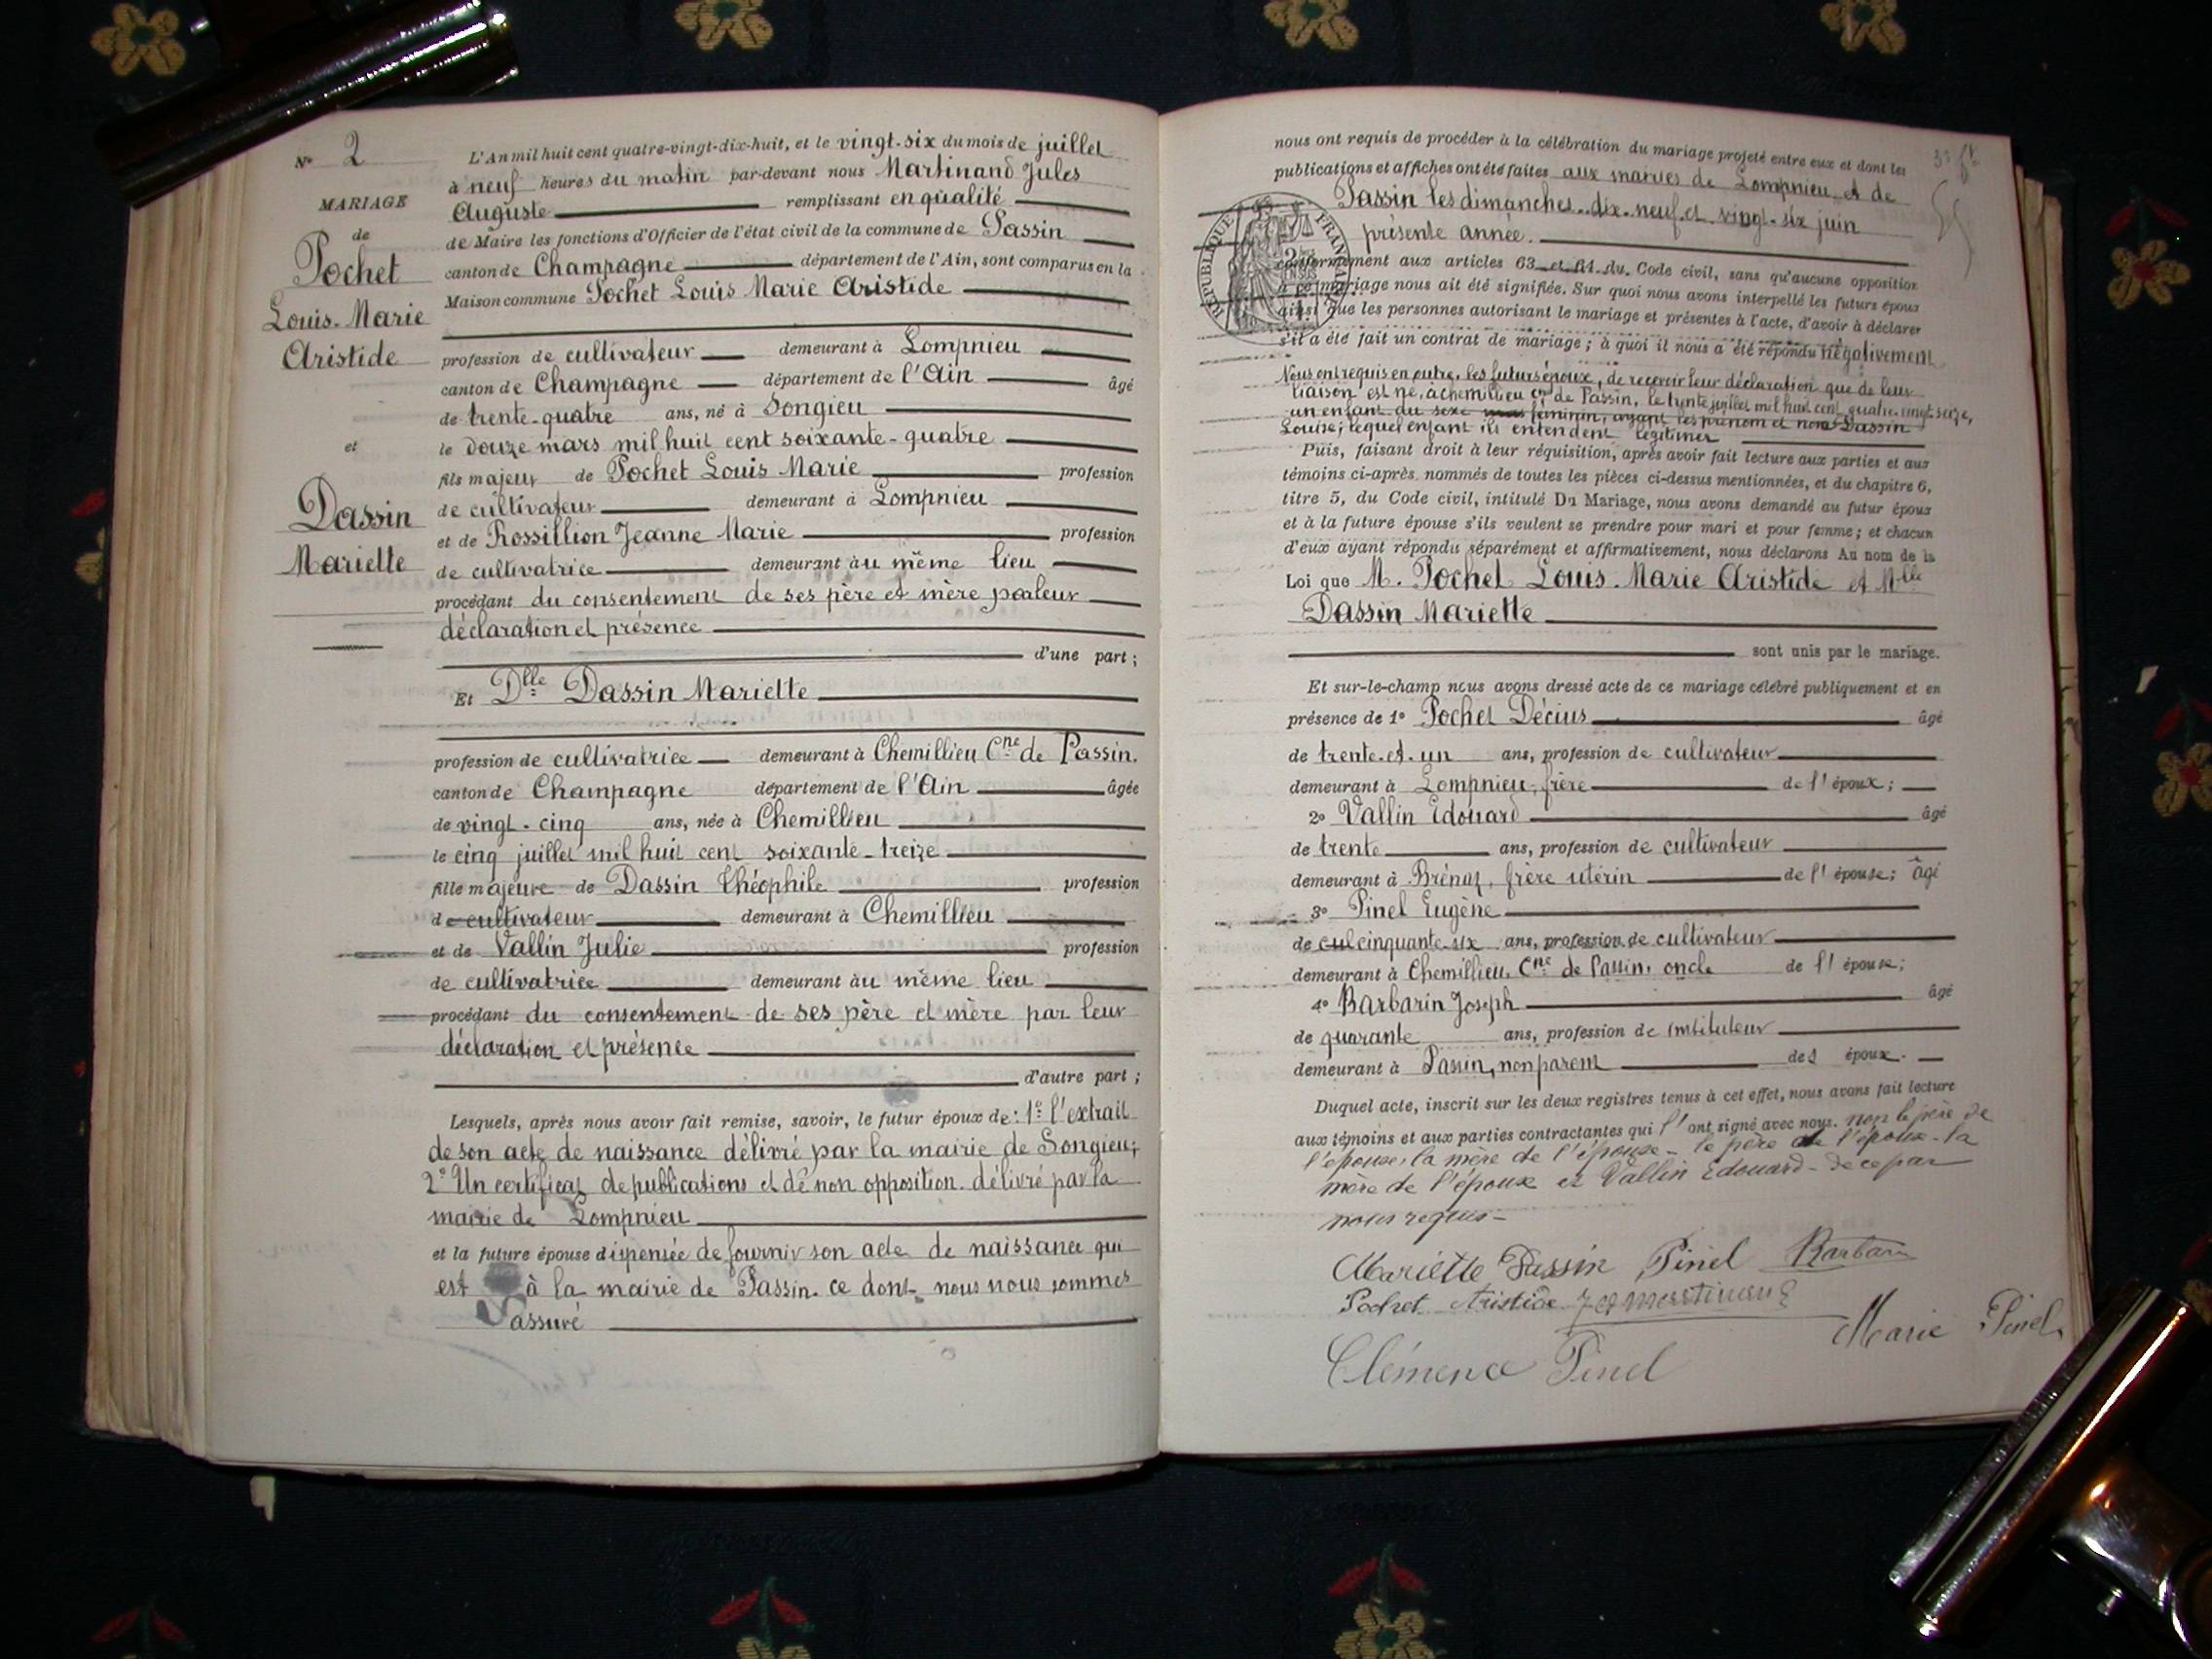 N° 2
MARIAGE
de
Pochet
Louis-Marie
Aristide
et
Dassin
Mariette
L'An mil huit cent quatre-vingt-dix-huit, et le vingt-six du mois de juillet
à neuf heures du matin par-devant nous Martinand Jules
Auguste remplissant en qualité
de Maire les fonctions d'Officier de l'état civil de la commune de Passin
canton de Champagne département de l'Ain, sont comparus en la
Maison commune Pochet Louis Marie Aristide
profession de cultivateur demeurant à Lompnieu
canton de Champagne département de l'Ain âgé
de trente-quatre ans, né à Songieu
le douze mars mil huit cent soixante-quatre
fils majeur de Pochet Louis Marie profession
de cultivateur demeurant à Lompnieu
et de Rossillion Jeanne Marie profession
de cultivatrice demeurant àu même lieu
procédant du consentement de ses père et mère par leur
déclaration et présence
d'une part ;
Et Dlle Dassin Mariette
profession de cultivatrice demeurant à Chemillieu Cne de Passin.
canton de Champagne département de l'Ain âgée
de vingt-cinq ans, née à Chemillieu
le cinq juillet mil huit cent soixante-treize
fille majeure de Dassin Théophile profession
de cultivateur demeurant à Chemillieu
et de Vallin Julie profession
de cultivatrice demeurant àu même lieu
procédant du consentement de ses père et mère par leur
déclaration et présence
d'autre part ;
Lesquels, après nous avoir fait remise, savoir, le futur époux de : 1° l'extrait
de son acte de naissance délivré par la mairie de Songieu;
2° Un certificat de publications et de non opposition délivré par la
mairie de Lompnieu
et la future épouse dispensée de fournir son acte de naissance qui
est à la mairie de Passin. ce dont nous nous sommes
assuré
nous ont requis de procéder à la célébration du mariage projeté entre eux et dont les
publications et affiches ont été faites aux mairies de Lompnieu et de
Passin les dimanches dix-neuf et vingt-six juin
présente année.
RÉPUBLIQUE FRANÇAISE
conformément aux articles 63 et 64 du Code civil, sans qu'aucune opposition
à ce mariage nous ait été signifiée. Sur quoi nous avons interpellé les futurs époux
ainsi que les personnes autorisant le mariage et présentes à l'acte, d'avoir à déclarer
s'il a été fait un contrat de mariage ; à quoi il nous a été répondu négativement
Nous ont requis en outre, les futurs époux, de recevoir leur déclaration que de leur
liaison est né, à Chemillieu cne de Passin, le trente juillet mil huit cent quatre-vingt-seize,
un enfant du sexe féminin, ayant les prénom et nom Dassin
Louise; lequel enfant ils entendent légitimer
Puis, faisant droit à leur réquisition, après avoir fait lecture aux parties et aux
témoins ci-après nommés de toutes les pièces ci-dessus mentionnées, et du chapitre 6,
titre 5, du Code civil, intitulé DU MARIAGE, nous avons demandé au futur époux
et à la future épouse s'ils veulent se prendre pour mari et pour femme ; et chacun
d'eux ayant répondu séparément et affirmativement, nous déclarons AU NOM DE LA
LOI que M. Pochet Louis-Marie Aristide et Mlle
Dassin Mariette
sont unis par le mariage.
Et sur-le-champ nous avons dressé acte de ce mariage célébré publiquement et en
présence de 1° Pochet Décius âgé
de trente-et-un ans, profession de cultivateur
demeurant à Lompnieu, frère de l'époux ;
2° Vallin Edouard âgé
de trente ans, profession de cultivateur
demeurant à Brénaz, frère utérin de l'épouse; âgé
3° Pinel Eugène
de cul cinquante-six ans, profession de cultivateur
demeurant à Chemillieu, Cne de Passin, oncle de l'épouse;
4° Barbarin Joseph âgé
de quarante ans, profession de instituteur
demeurant à Passin, non parent des époux.
Duquel acte, inscrit sur les deux registres tenus à cet effet, nous avons fait lecture
aux témoins et aux parties contractantes qui l'ont signé avec nous. non le père de
l'épouse, la mère de l'épouse - le père de l'époux - la
mère de l'époux et Vallin Edouard - de ce par
nous requis -
Mariette Dassin Pinel Barbarin
Pochet Aristide J A Martinand
Marie Pinel
Clémence Pinel